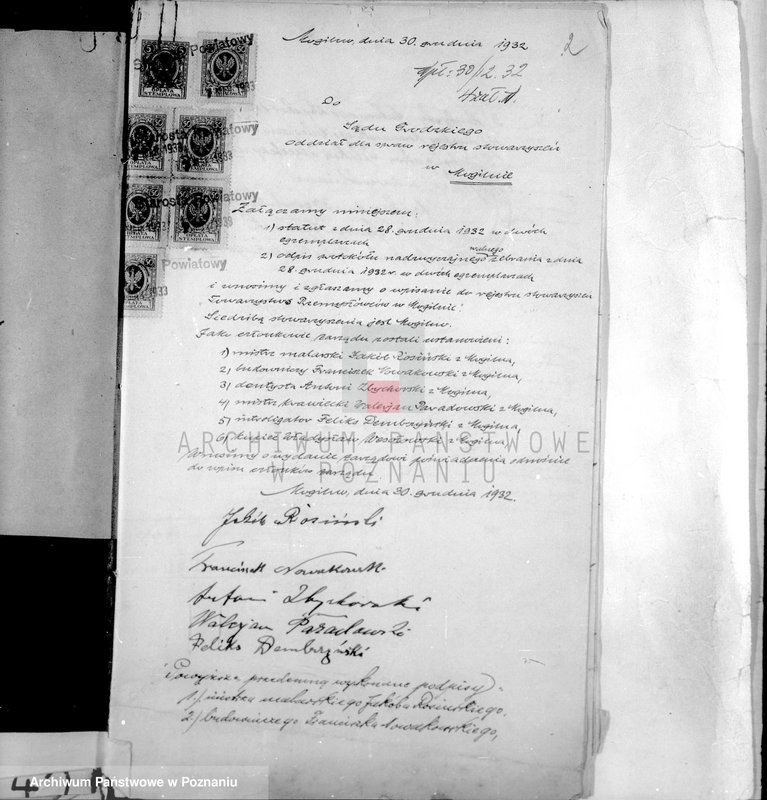 Mogilno, dnia 30. grudnia 1932
2
wpł: 30/12.32
4 zał.
Do
Sądu Grodzkiego
oddział dla spraw rejestru stowarzyszeń
w Mogilnie
Starosta Powiatowy
OPŁATA STEMPLOWA
Starosta Powiatowy
1933
Starosta Powiatowy
Powiatowy
1933
Załączamy niniejszem:
1) statut z dnia 28. grudnia 1932 w dwóch
egzemplarzach
walnego
2) odpis protokółu nadzwyczajnego zebrania z dnia
28. grudnia 1932 r. w dwóch egzemplarzach
i wnosimy i zgłaszamy o wpisanie do rejestru stowarzyszeń
"Towarzystwo Przemysłowców w Mogilnie".
Siedzibą stowarzyszenia jest Mogilno.
Jako członkowie zarządu zostali ustanowieni:
1) mistrz malarski Jakób Rosiński z Mogilna,
2) budowniczy Franciszek Nowakowski z Mogilna,
3) dentysta Antoni Zbychorski z Mogilna,
4) mistrz krawiecki Walerjan Paradowski z Mogilna,
5) introligator Feliks Dembrzyński z Mogilna,
6) kupiec Władysław z Mogilna.
Wnosimy o wydanie zarządowi poświadczenia odnośnie
do wpisu członków zarządu.
Mogilno, dnia 30. grudnia 1932.
Jakób Rosiński
Franciszek Nowakowski
Antoni Zbychorski
Walerjan Paradowski
Feliks Dembrzyński
Powyższe przedemną wykonane podpisy:
1.) mistrza malarskiego Jakóba Rosińskiego,
2) budowniczego Franciszka Nowakowskiego,
ARCHIWUM PAŃSTWOWE
W POZNANIU
Archiwum Państwowe w Poznaniu